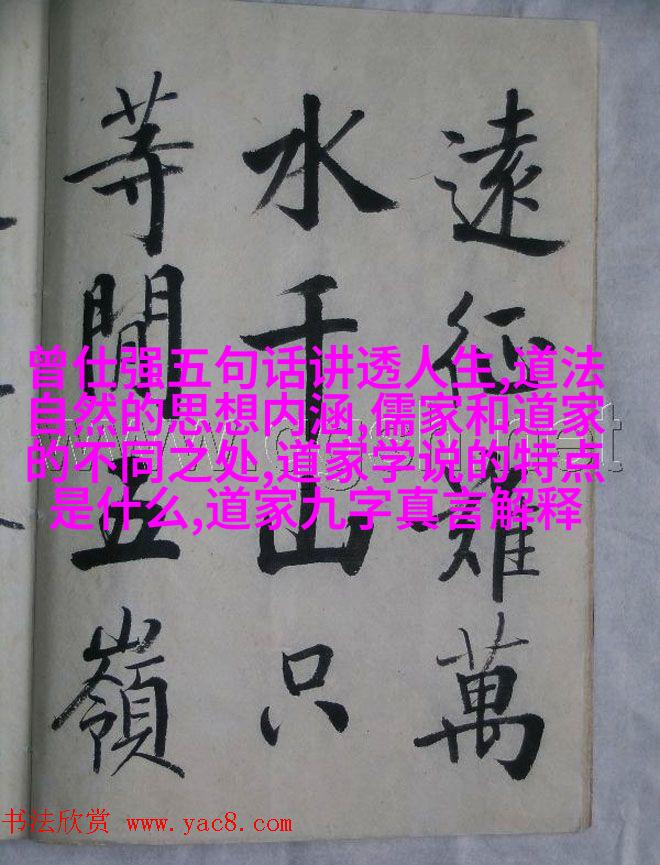 遠征難萬
水千山只
等閒五嶺
曾仕强五句话讲透人生,道法
自然的思想内涵,儒家和道家
的不同之处,道家学说的特点
是什么,道家九字真言解释
书法欣赏 www.yac8.com